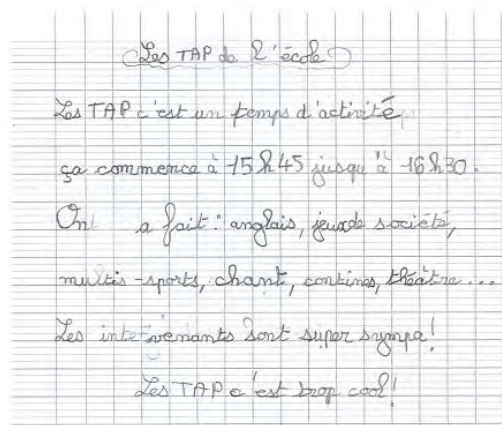 Les TAP de l'école
Les TAP c'est un temps d'activité
ça commence à 15h45 jusqu'à 16h30.
On a fait : anglais, jeux de société,
multis-sports, chant, contines, théâtre...
Les intervenants sont super sympa !
Les TAP c'est trop cool !